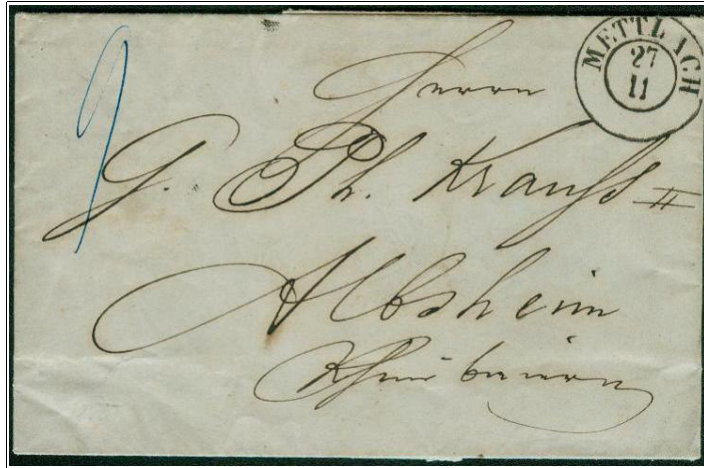 METTLACH
27
11
9
Herrn
G. Ph. Krauss II
Albsheim
Rheinbaiern